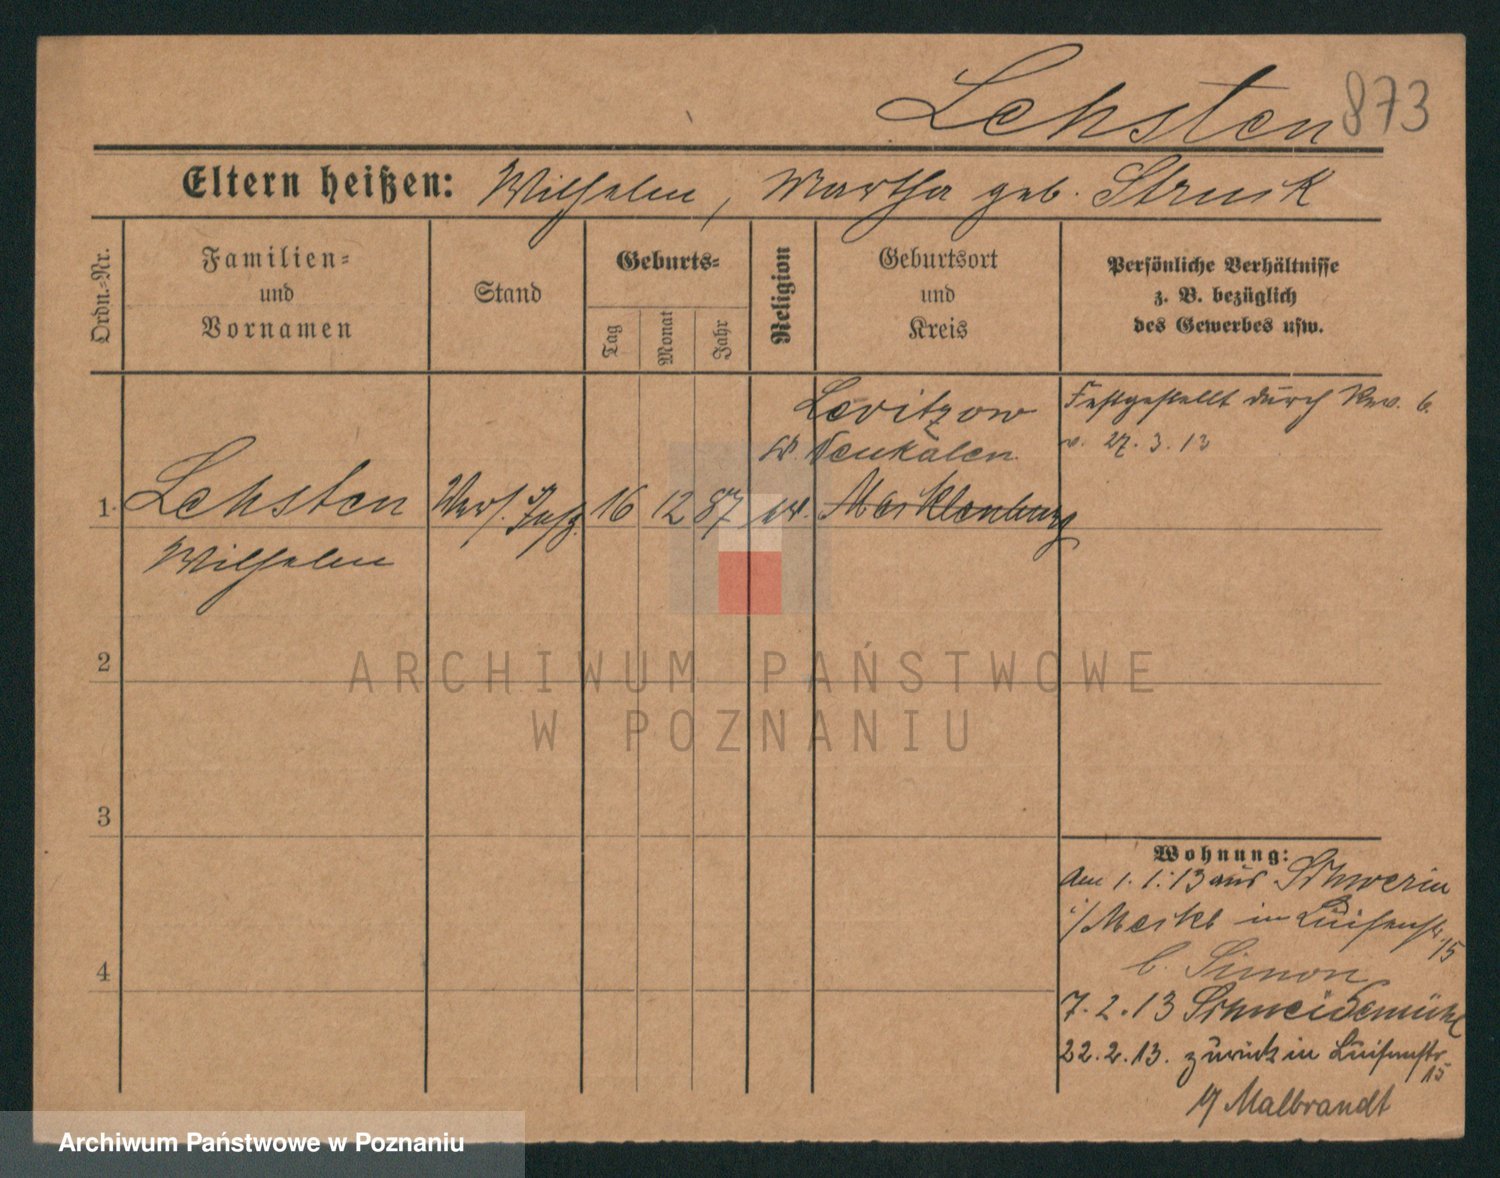 Lehsten 873
Eltern heißen: Wilhelm, Martha geb. Struck
Ordn.=Nr.
Familien=
und
Vornamen
Stand
Geburts=
Tag
Monat
Jahr
Religion
Geburtsort
und
Kreis
Persönliche Verhältnisse
z. B. bezüglich
des Gewerbes usw.
Levitzow
Neukalen
Festgestellt durch Rev. 6.
v. 27. 3. 13
1. Lehsten 16 12 87 ev. Mecklenburg
Wilhelm
2
3
4
Wohnung:
Am 1. 1. 13 aus Schwerin
i/Meckl in Luisenstr.
15
b. Simon
7. 2. 13 Schneidemühl
22. 2. 13. zurück in Luisenstr.
15
Malbrandt
ARCHIWUM PAŃSTWOWE
W POZNANIU
Archiwum Państwowe w Poznaniu